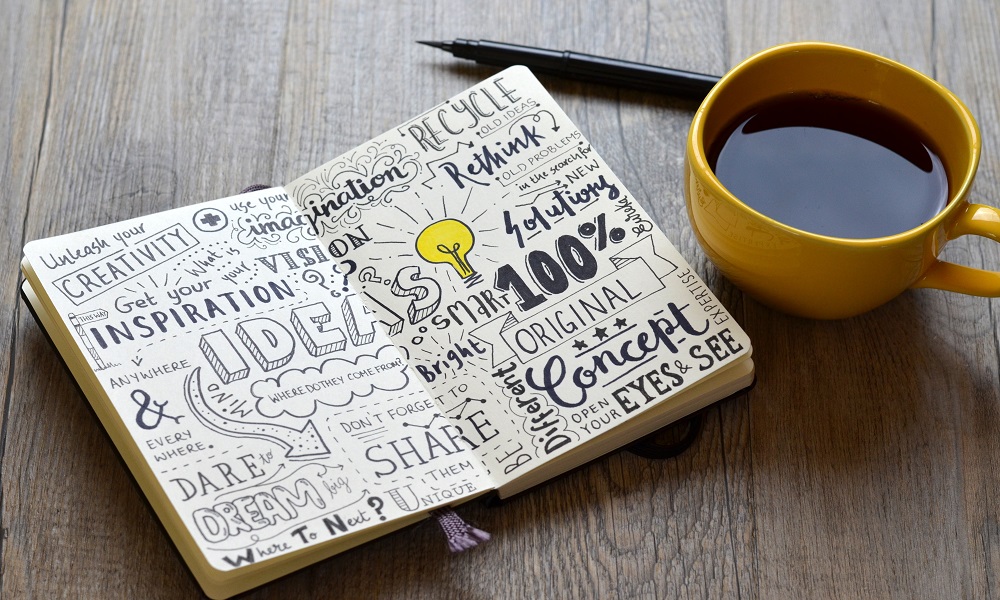 Unleash your
CREATIVITY
use your
imagination
What is
your
VISION
?
Get your
INSPIRATION
THIS WAY
IDEAS
MIND
WHERE DO THEY COME FROM?
ANYWHERE
&
EVERY
WHERE.
DON'T FORGET TO
SHARE
THEM
DARE to
DREAM big
Where To Next?
UNIQUE
RECYCLE
OLD IDEAS
Rethink
OLD PROBLEMS
in the search for
NEW
Solutions
SMART
100%
ORIGINAL
Bright
Concept
EXPERTISE
BE
Different
OPEN
YOUR
EYES & SEE